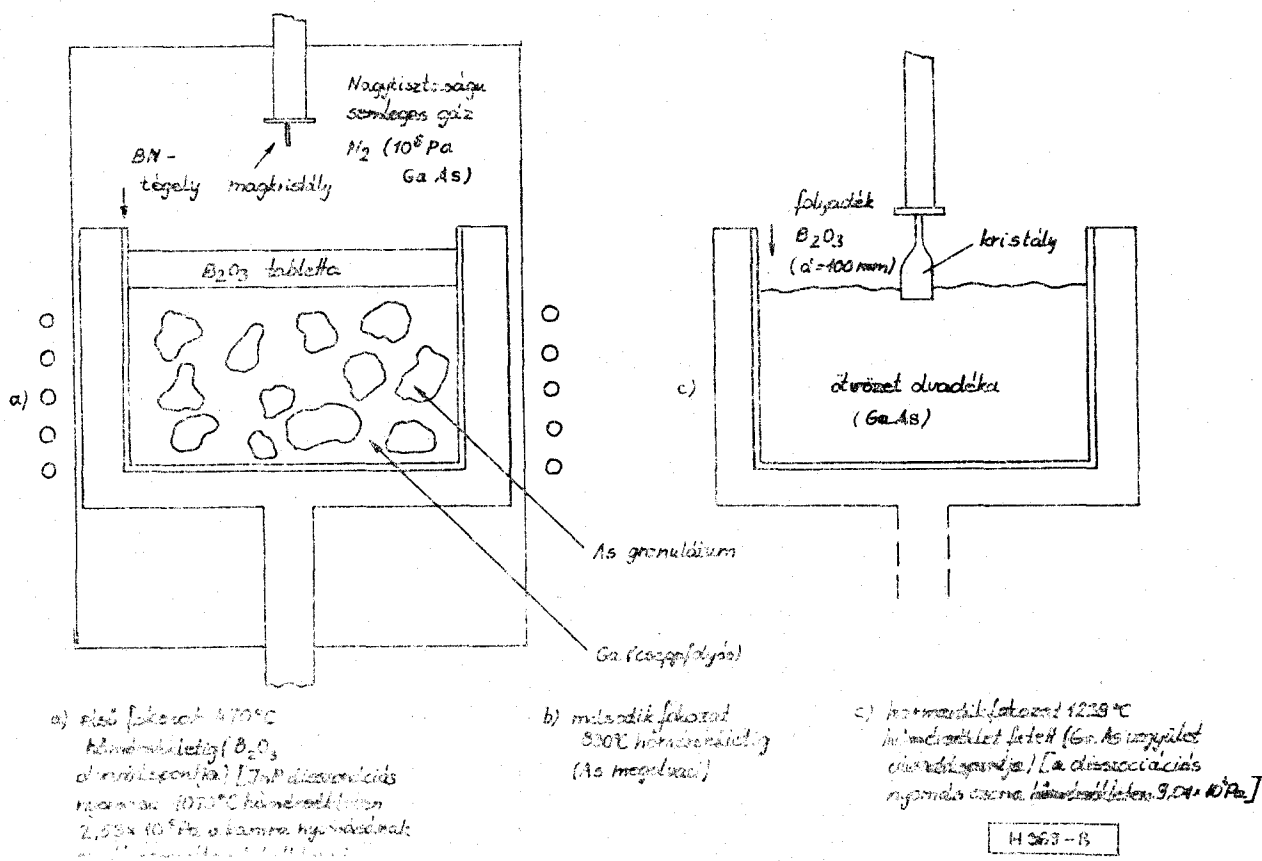 Nagytisztaságu
semleges gáz
N₂ (10⁶ Pa
Ga As)
BN-
tégely
magkristály
B₂O₃ tabletta
a)
As granulátum
Ga (cseppfolyós)
folyadék
B₂O₃
(d=100 mm)
kristály
c)
ötvözet olvadéka
(Ga As)
a) első fokozat 470°C
hőmérsékletig (B₂O₃
olvadáspontja) [InP disszociációs
nyomása 1070°C hőmérsékleten
a kamra nyomásának
b) második fokozat
hőmérsékletig
(As megolvad)
c) harmadik fokozat 1238°C
hőmérséklet felett (Ga As vegyület
olvadáspontja) [a disszociációs
nyomás ezen a hőmérsékleten Pa]
H 363-B